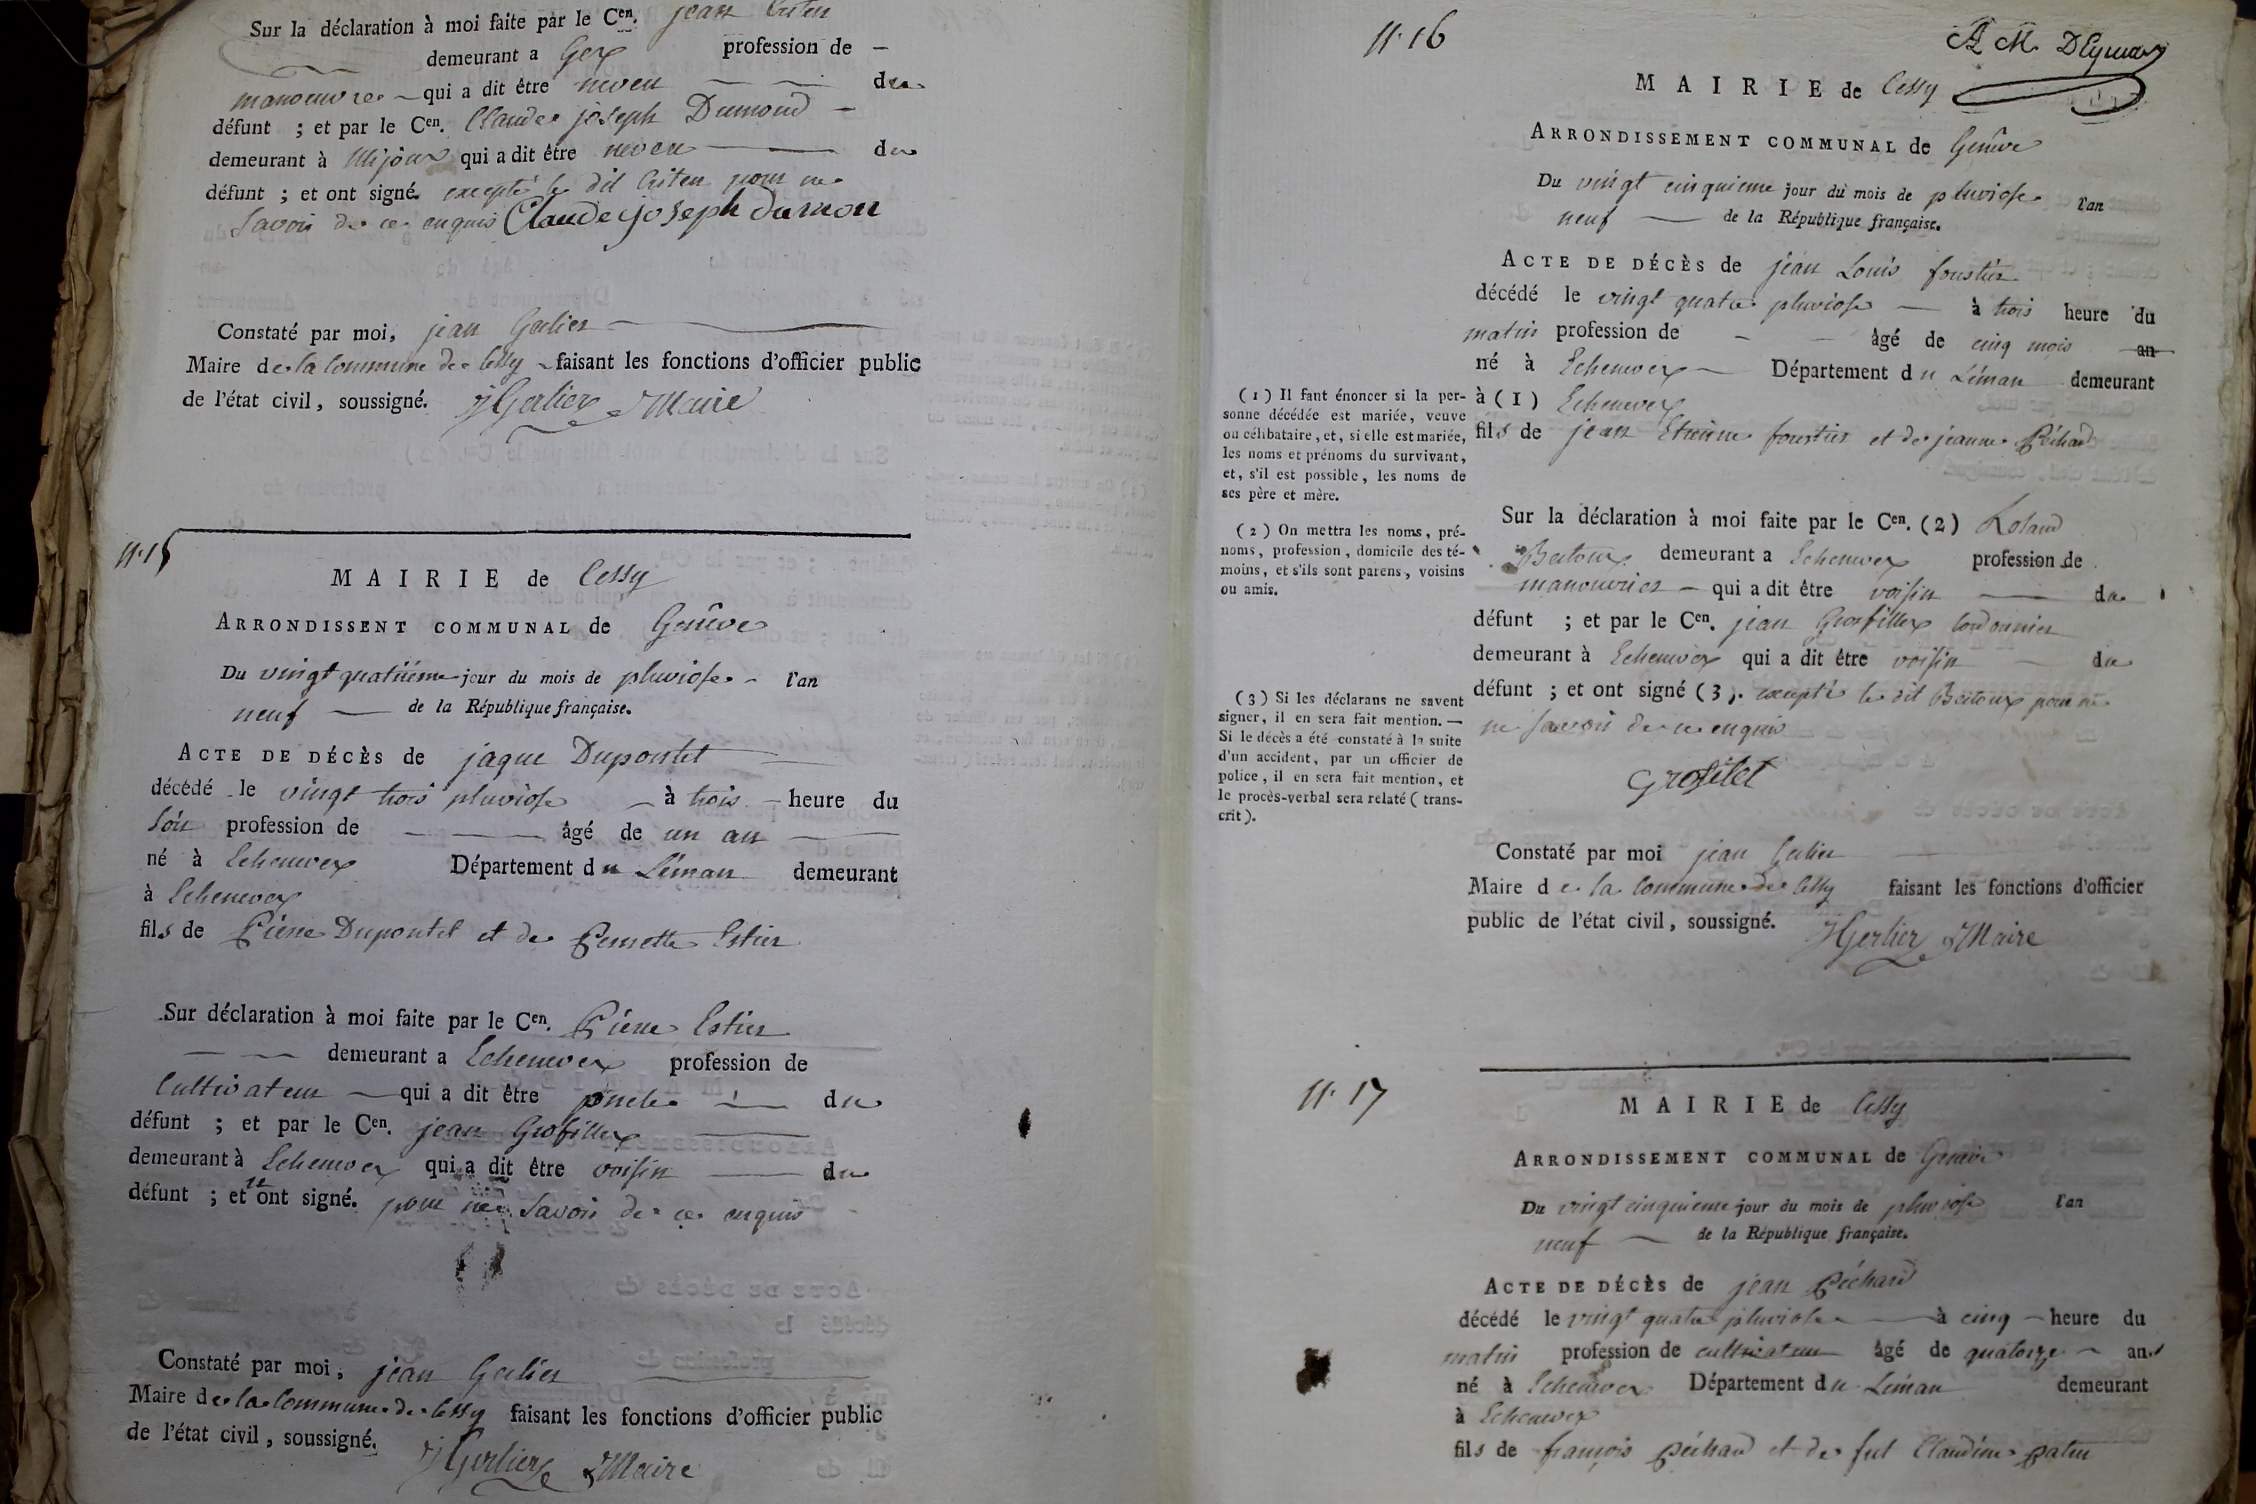 Sur la déclaration à moi faite par le Cen. jean
demeurant a Gex profession de —
manoeuvre qui a dit être neveu du
défunt ; et par le Cen. Claude joseph Dumond —
demeurant à Mijoux qui a dit être neveu du
défunt ; et ont signé. excepté le dit pour ne
Savoir de ce enquis Claude joseph dumon
Constaté par moi, jean Gerlier
Maire de la Commune de Cessy faisant les fonctions d'officier public
de l'état civil, soussigné. J Gerlier Maire
N. 15
MAIRIE de Cessy
ARRONDISSENT COMMUNAL de Genève
Du vingt quatrième jour du mois de pluviose l'an
neuf — de la République française.
ACTE DE DÉCÈS de jaque Dupontet
décédé le vingt trois pluviose à trois heure du
Soir profession de — âgé de un an
né à Echenevex Département du Léman demeurant
à Echenevex
fils de Pierre Dupontet et de Pernette Estier
Sur déclaration à moi faite par le Cen. Pierre Estier
demeurant a Echenevex profession de
Cultivateur qui a dit être oncle du
défunt ; et par le Cen. jean Grosfillex
demeurant à Echenevex qui a dit être voisin du
défunt ; et n'ont signé. pour ne Savoir de ce enquis
Constaté par moi, jean Gerlier
Maire de la Commune de Cessy faisant les fonctions d'officier public
de l'état civil, soussigné. J Gerlier Maire
N. 16
A M. DEymar
MAIRIE de Cessy
ARRONDISSEMENT COMMUNAL de Genève
Du vingt cinquieme jour du mois de pluviose l'an
neuf — de la République française.
ACTE DE DÉCÈS de jean Louis fourtier
décédé le vingt quatre pluviose — à trois heure du
matin profession de - âgé de cinq mois an
né à Echenevex Département du Léman demeurant
à (1) Echenevex
fils de jean Etienne fourtier et de jeanne Péchard
(1) Il faut énoncer si la per-
sonne décédée est mariée, veuve
ou célibataire, et, si elle est mariée,
les noms et prénoms du survivant,
et, s'il est possible, les noms de
ses père et mère.
Sur la déclaration à moi faite par le Cen. (2) Roland
Bertoux demeurant a Echenevex profession de
manouvrier qui a dit être voisin du
défunt ; et par le Cen. jean Grosfillex Cordonnier
demeurant à Echenevex qui a dit être voisin du
défunt ; et ont signé (3). excepté le dit Bertoux pour ne
ne Savoir de ce enquis
Grosfilet
(2) On mettra les noms, pré-
noms, profession, domicile des té-
moins, et s'ils sont parens, voisins
ou amis.
(3) Si les déclarans ne savent
signer, il en sera fait mention. —
Si le décès a été constaté à la suite
d'un accident, par un officier de
police, il en sera fait mention, et
le procès-verbal sera relaté (trans-
crit).
Constaté par moi jean Gerlier
Maire de la Commune de Cessy faisant les fonctions d'officier
public de l'état civil, soussigné. J Gerlier Maire
N. 17
MAIRIE de Cessy
ARRONDISSEMENT COMMUNAL de Genève
Du vingt cinquieme jour du mois de pluviose l'an
neuf — de la République française.
ACTE DE DÉCÈS de jean Péchard
décédé le vingt quatre pluviose à cinq heure du
matin profession de cultivateur âgé de quatorze ans
né à Echenevex Département du Léman demeurant
à Echenevex
fils de françois Péchard et de fut Claudine